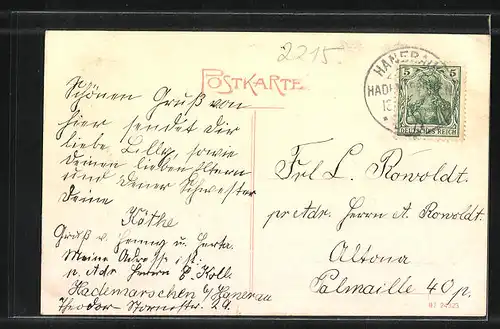 2215.
POSTKARTE
HANERAU
HAD
5 5
DEUTSCHES REICH
Schönen Gruß von
hier sendet dir
liebe Lilly, sowie
deinen lieben Eltern
und deiner Schwester
Deine
Käthe
Gruß v. Henny u. Herta.
Meine Adresse ist:
p. Adr Herrn E. Kolb
Hademarschen b/Hanerau
Theodor-Stormstr. 29.
Frl L. Rowoldt.
pr Adr. Herrn A. Rowoldt.
Altona
Palmaille 40 p.